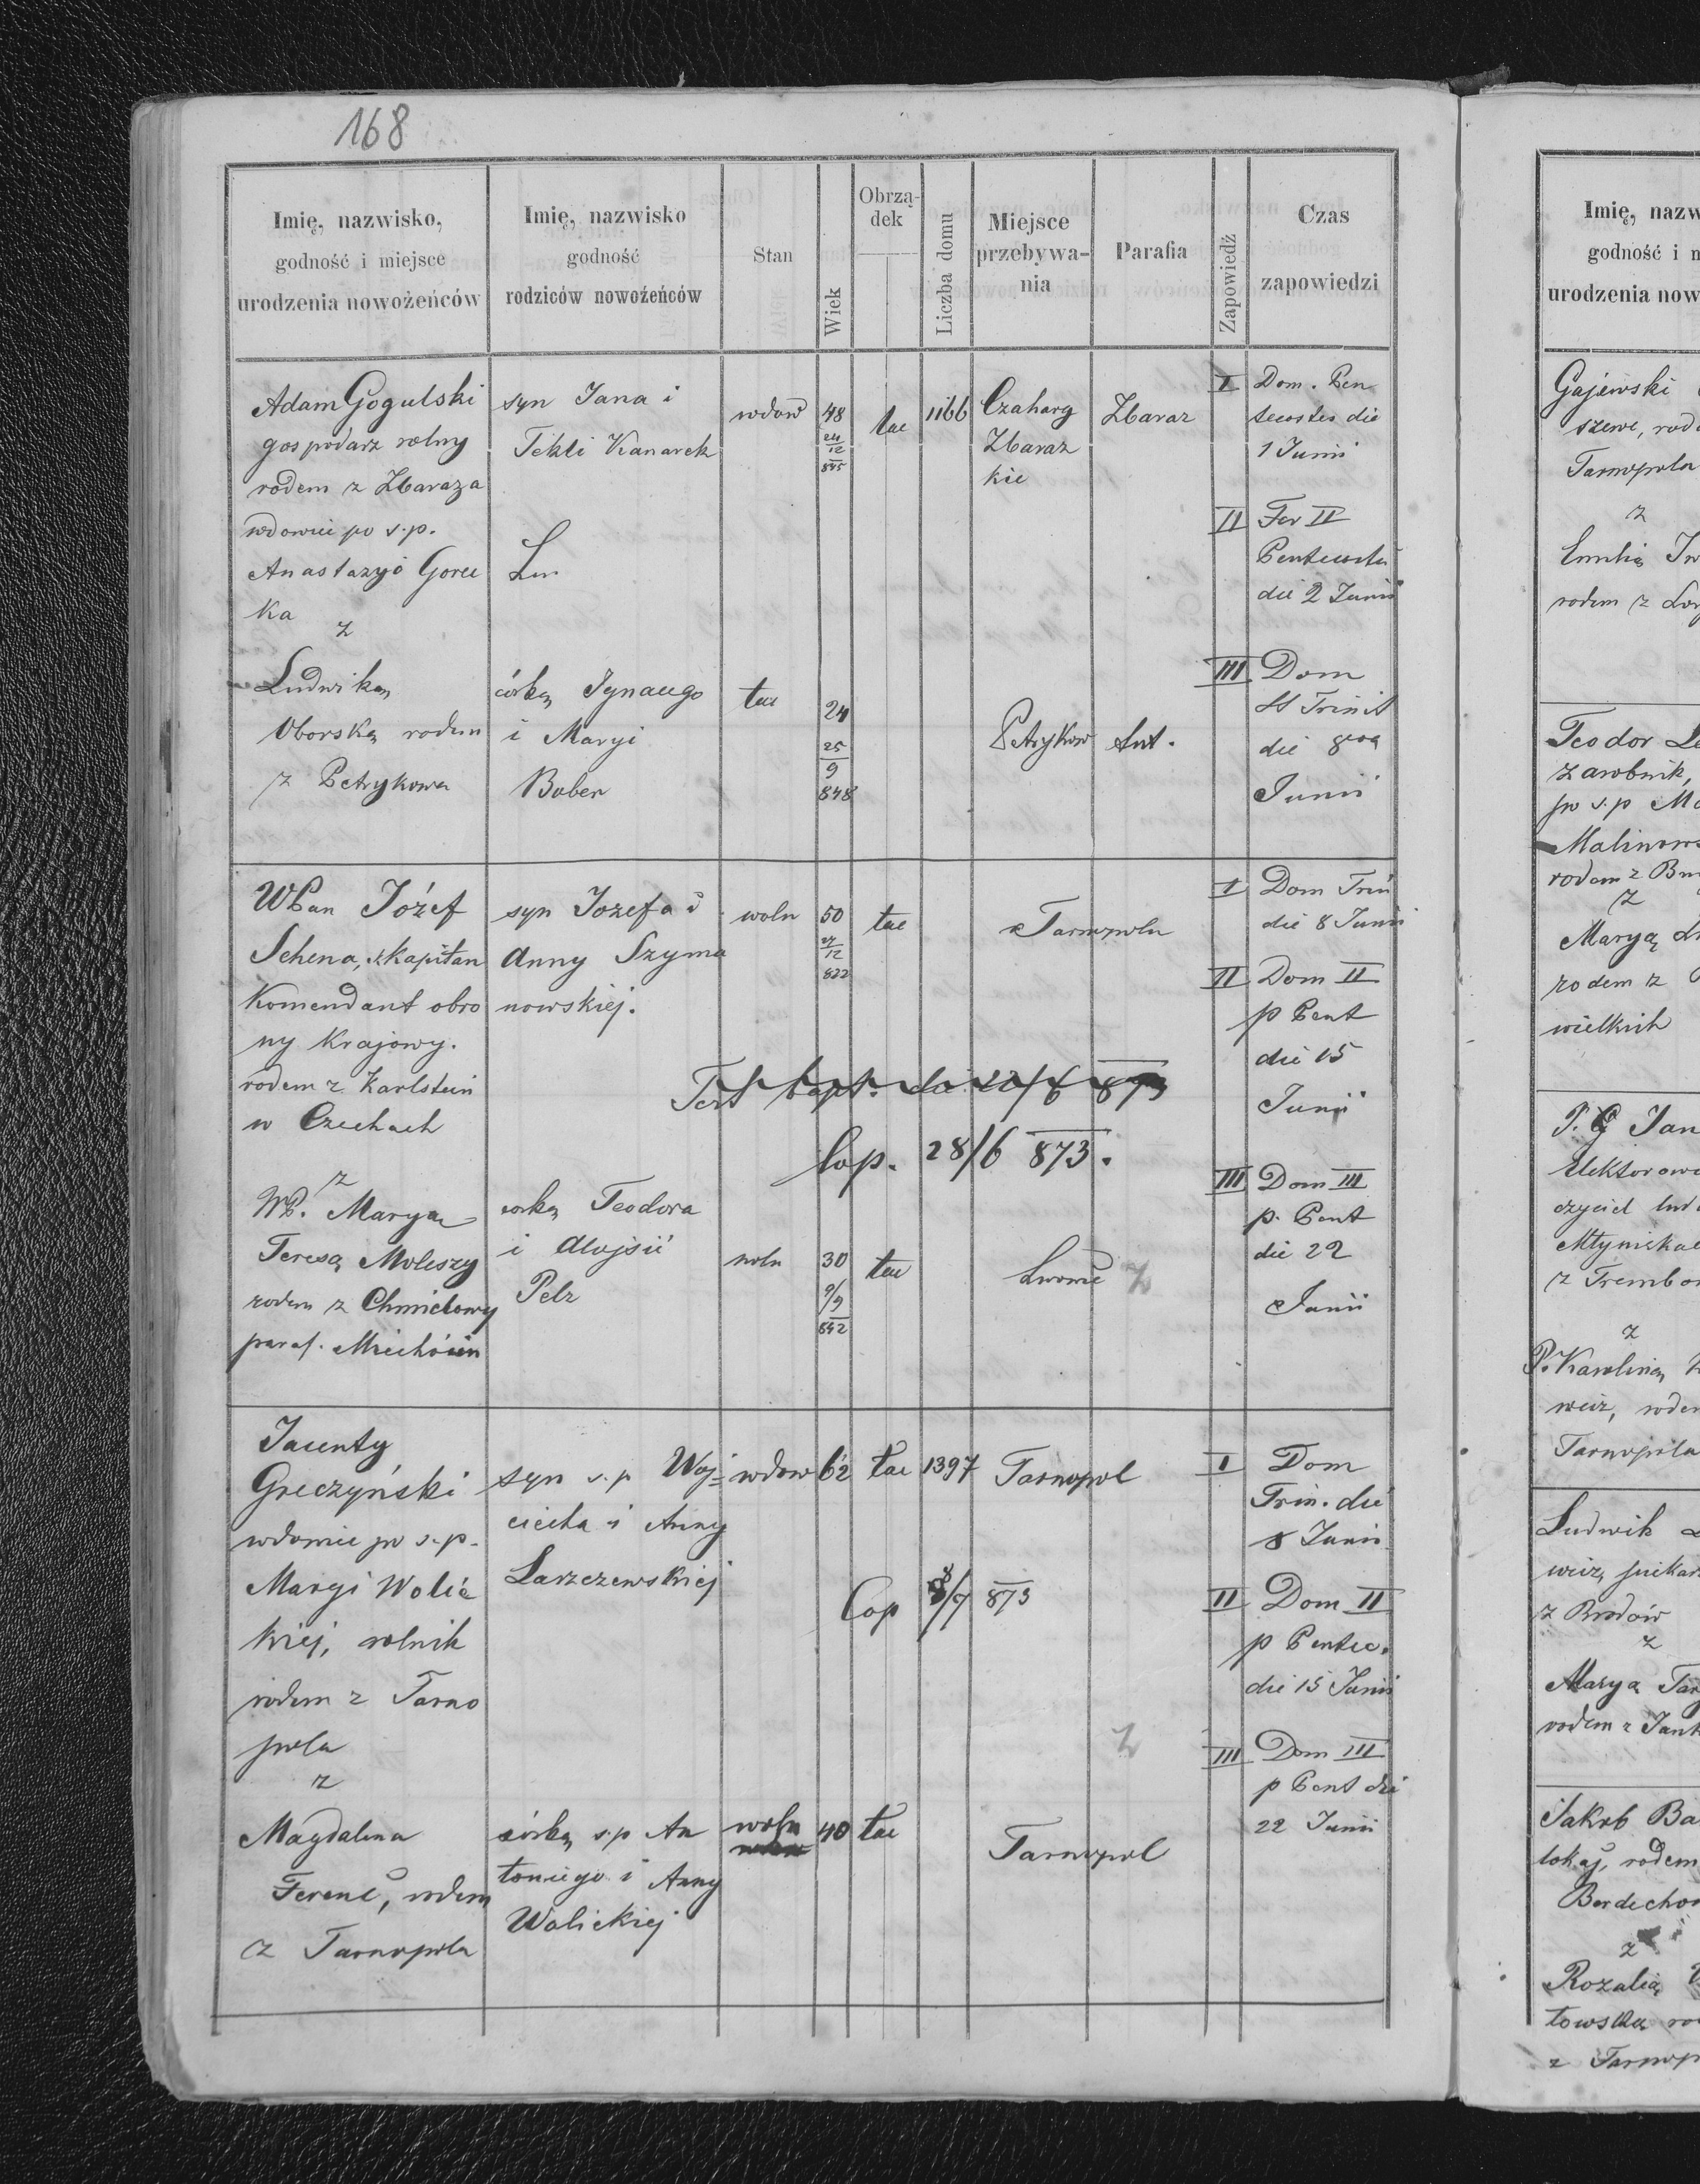 168
Imię, nazwisko,
godność i miejsce
urodzenia nowożeńców
Imię, nazwisko
godność
rodziców nowożeńców
Stan
Wiek
Obrzą-
dek
Liczba domu
Miejsce
przebywa-
nia
Parafia
Zapowiedź
Czas
zapowiedzi
Adam Gogulski
gospodarz rolny
rodem z Zbaraza
wdowiec po s.p.
Anastazyi Gorec
ka
z
Ludwiką
Oborską rodem
z Petrykowa
syn Jana i
Tekli Kanarek
córką Ignacego
i Maryi
Bober
wdow
48
24
12
845
lac
1166
Czaharg
Zbaraz
kie
Zbaraz
24
25
9
848
Petryków
Ant.
I Dom. Pen
tecostes die
1 Junii
II Fer II
Pentecostes
die 2 Junii
III Dom
SS Trinit
die 8va
Junii
WPan Józef
Schena, kapitan
Komendant obro
ny krajowy.
rodem z Karlstein
w Czechach
z
WP. Marya
Teresą Moleszy
rodem z Chmielowy
paraf.
syn Jozefa i
Anny Szyma
nowskiej.
corką Teodora
i Alojsii
Pelz
woln
50
27
12
822
lac
Tarnopolu
Test bapt.
Cop. 28/6 873.
woln
30
9/9
842
lac
Lwowie
I Dom Trin
die 8 Junii
II Dom II
p Pent
die 15
Junii
III Dom III
p. Pent
die 22
Junii
Jacenty
Greczyński
wdowiec po s.p.
Maryi Wolic
kiej, rolnik
rodem z Tarno
pola
z
Magdalena
Ferenc, rodem
z Tarnopola
syn s.p Woj=
ciecha i Anny
Larzczewskiej
córką s.p An
toniego i Anny
Wolickiej
wdow
62
lac
1397
Tarnopol
Cop 8/7 873
woln
40
lac
Tarnopol
I Dom
Trin. die
8 Junii
II Dom II
p Pentec.
die 15 Junii
III Dom III
p Pent die
22 Junii
Imię, nazw
godność i m
urodzenia now
Gajewski
szewc, rod
Tarnopola
z
Emilią
rodem z
Teodor
zarobnik,
po s.p
Malinows
rodem z
z
Maryą
rodem z
wielkich
P. Jan
czyciel
z Trembo
z
P. Karoliną
wicz, rodem
Tarnopola
Ludwik
z Brodów
z
Marya Tar
rodem z Jank
Jakob Ba
lokaj, rodem
z
Rozalią
towska
z Tarnop